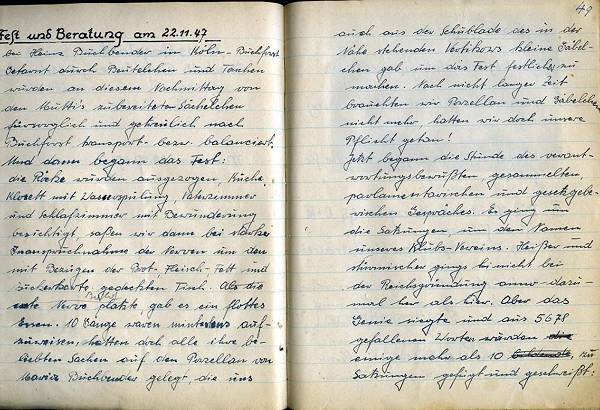 Fest und Beratung am 22.11.47
bei Heinz Buchbender in Köln-Buchforst
Getarnt durch Beutelchen und Taschen
wurden an diesem Nachmittag von
den Mutti's zubereiteten Sächelchen
fürsorglich und getreulich nach
Buchforst transport- bezw. balanciert.
Und dann begann das Fest:
die Röcke wurden ausgezogen, Küche,
Klosett mit Wasserspülung, Vaterzimmer
und Schlafzimmer mit Bewunderung
besichtigt, saßen wir dann bei starker
Inanspruchnahme der Nerven um den
mit Bezügen der Brot-Fleisch-Fett und
Zuckerkarte gedeckten Tisch. Als die
erste Nerve platzte, gab es ein flottes
Essen. 10 Gänge waren mindestens auf-
zuweisen, hatten doch alle ihre be-
liebten Sachen auf den Porzellan von
Maria Buchbender gelegt, die uns
49
auch aus der Schublade des in der
Nähe stehenden Vertikows kleine Gäbel-
chen gab um das Fest festlicher zu
machen. Nach nicht langer Zeit
brauchten wir Porzellan und Gäbelchen
nicht mehr, hatten wir doch unsere
Pflicht getan!
Jetzt begann die Stunde des verant-
wortungsbewußten, gesammelten,
parlamentarischen und gesetzgebe-
rischen Gespräches. Es ging um
die Satzungen, um den Namen
unseres Klubs-Vereins. Heißer und
stürmischer gings bei nicht bei
der Reichsgründung anno dazu-
mal her als hier. Aber das
Genie siegte und aus 5678
gefallenen Worten wurden die
einige mehr als 10 zu
Satzungen gefügt und geschweißt: